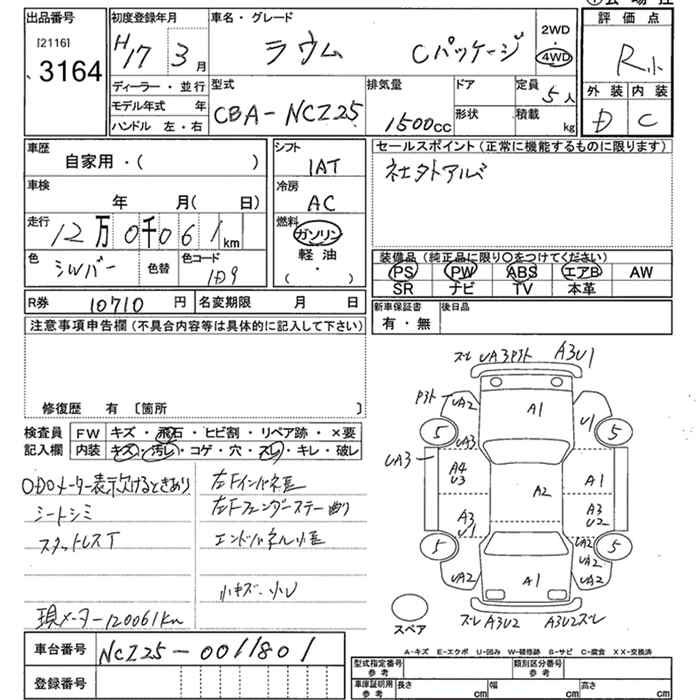 出品番号
[2116]
3164
初度登録年月
H17 3月
車名・グレード
ラウム Cパッケージ
2WD
4WD
評価点
R小
ディーラー・並行
モデル年式 年
ハンドル 左・右
型式
CBA-NCZ25
排気量
1500cc
ドア
形状
定員 5人
積載 kg
外装 内装
D C
車歴
自家用・( )
シフト
IAT
セールスポイント(正常に機能するものに限ります)
社外アルミ
車検
年 月( 日)
冷房
AC
走行
12万0千061km
燃料
ガソリン
軽油
( ・ )
色
シルバー
色替
色コード
1D9
装備品(純正品に限り○をつけてください)
PS PW ABS エアB AW
SR ナビ TV 本革
R券 10710円 名変期限 月 日
新車保証書
有・無
後日品
注意事項申告欄(不具合内容等は具体的に記入して下さい)
修復歴 有 〔箇所 〕
検査員
記入欄
FW キズ・飛石・ヒビ割・リペア跡・×要
内装 キズ・汚レ・コゲ・穴・スレ・キレ・破レ
ODOメーター表示欠けるときあり
シートシミ
スタットレスT
現メーター120061Km
左Fインパネ歪
左Fフェンダーステー曲り
エンドパネル小歪
小キズ・小U
ズレ UA3P3ト A3U1
P3ト UA2 U1
5 5
UA3 UA3
A1
A4
U3
A2
A1
A3
U1
A3
U2
UA2
5 5
UA2 UA2
UA2
A1
ズレ A3U2 A3U2ズレ
スペア
A-キズ E-エクボ U-凹み W-補修跡 S-サビ C-腐食 XX-交換済
車台番号 NCZ25-0011801
登録番号
型式指定番号
参考
類別区分番号
参考
車庫証明用
参考
長さ cm
幅 cm
高さ cm